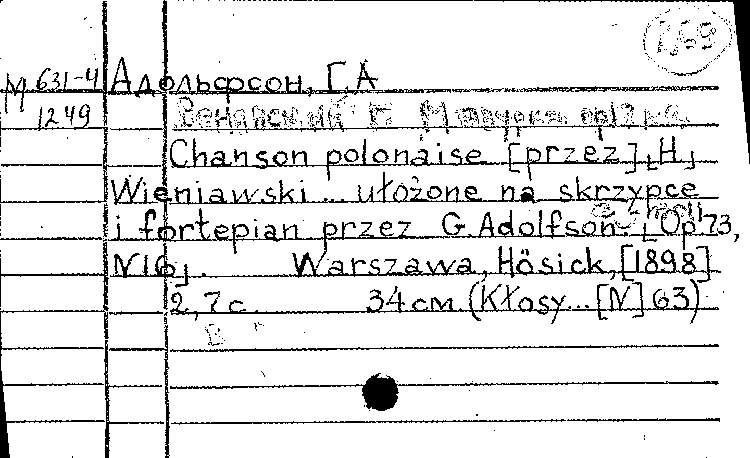 269
М 631-4 Адольфсон, Г.А
1249 Венявский Г. Мазурка
Chanson polonaise [przez] [H]
Wieniawski... ułożone na skrzypce
i fortepian przez G. Adolfson [Op 73,
N16]. Warszawa, Hösick, [1898]
2, 7 с. 34 см. (Kłosy... [N] 63)